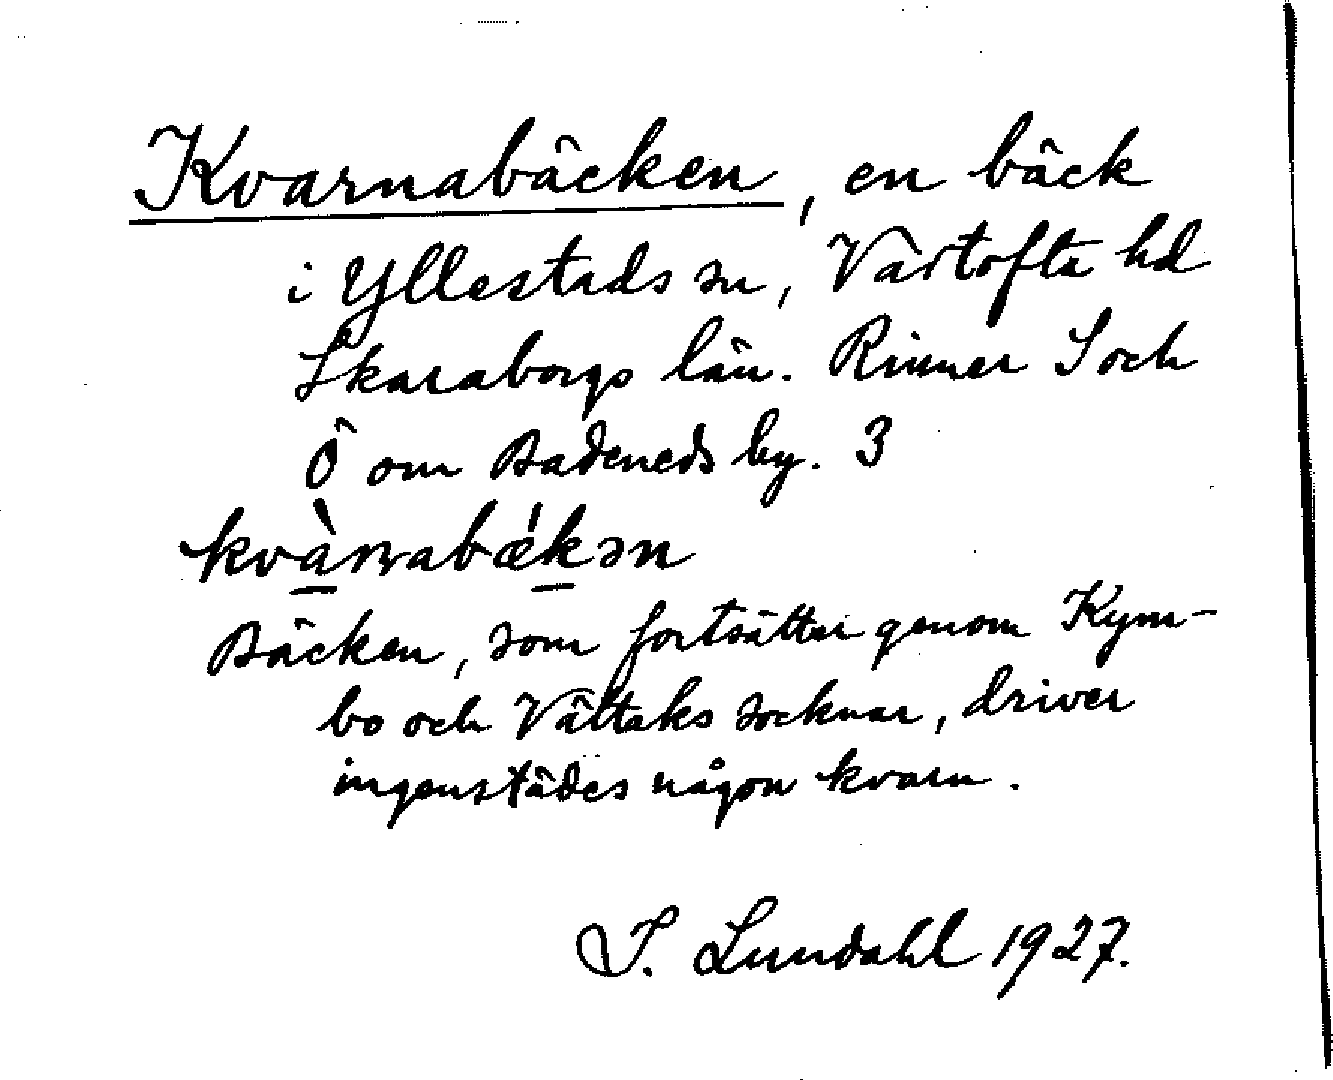 Kvarnabäcken, en bäck
i Yllestads sn, Vartofta hd
Skaraborgs län. Rinner S och
Ö om Badeneds by. 3
kvànnabækən
Bäcken, som fortsätter genom Kym-
bo och Vättaks socknar, driver
ingenstädes någon kvarn.
I. Lundahl 1927.